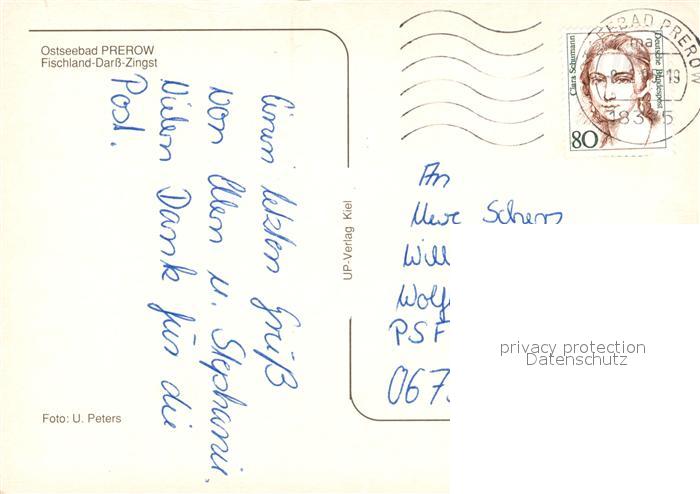 Ostseebad PREROW
Fischland-Darß-Zingst
Einen letzten Gruß
von Ellen u. Stephanie.
Vielen Dank für die
Post.
Foto: U. Peters
UP-Verlag Kiel
Clara Schumann
Deutsche Bundespost
80
SEEBAD PREROW
19
An
Uwe Scherns
Will
Wolf
PSF
067
privacy protection
Datenschutz